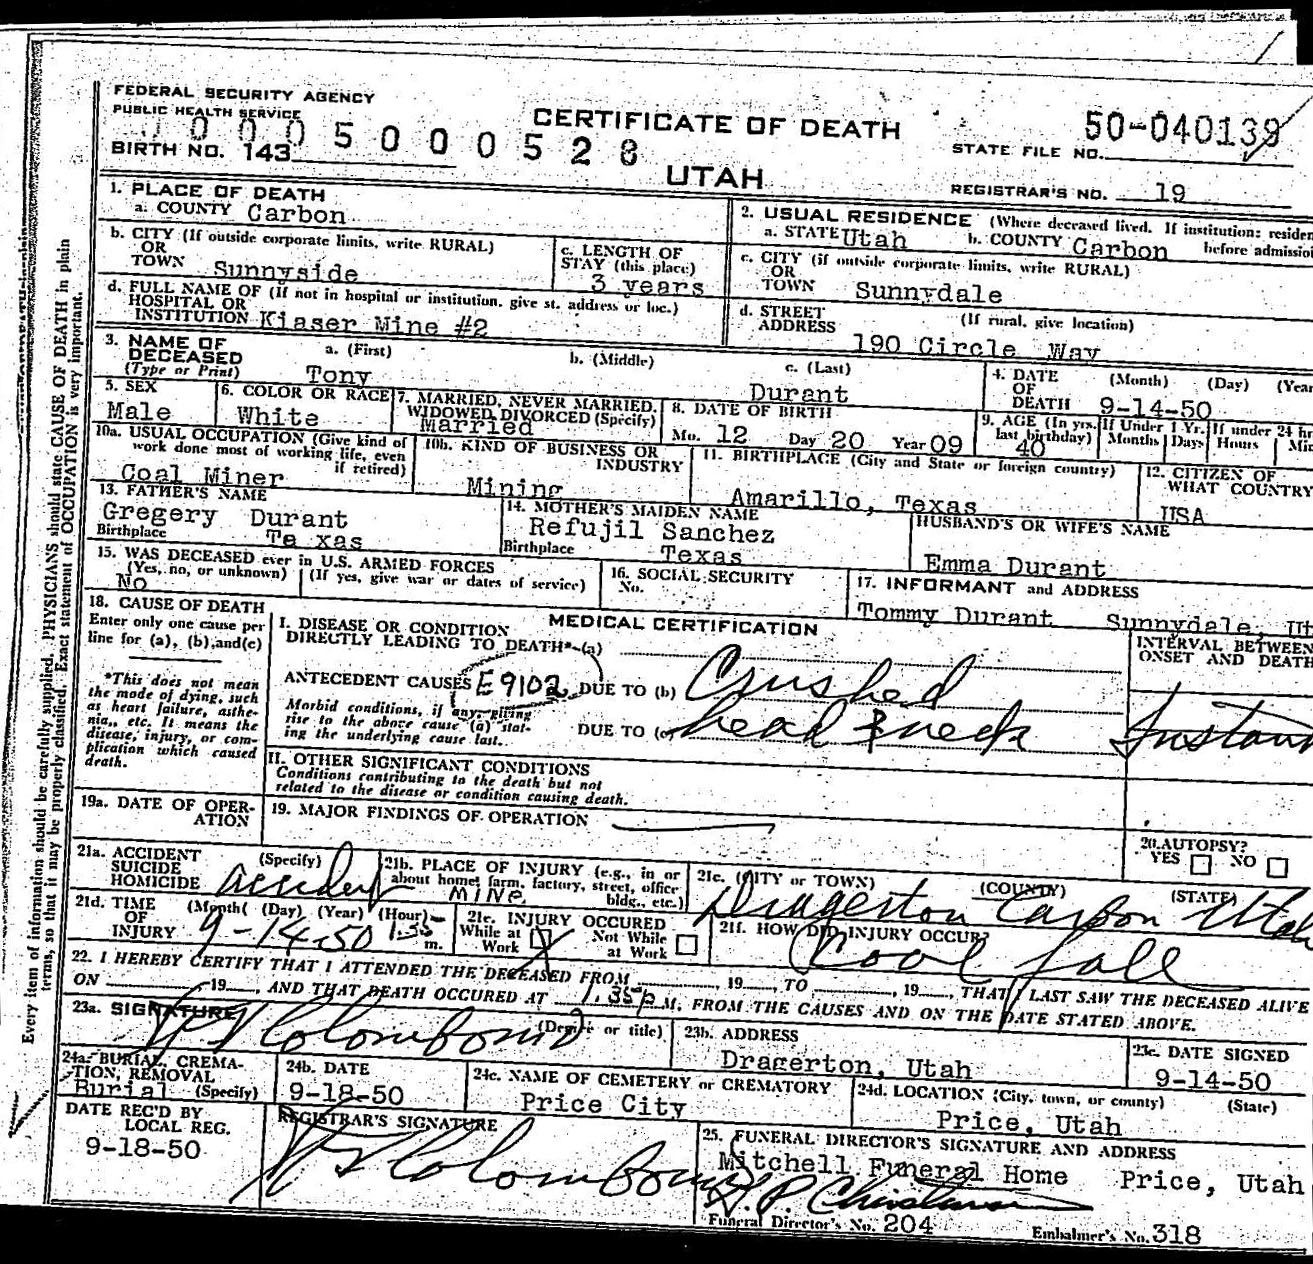 FEDERAL SECURITY AGENCY
PUBLIC HEALTH SERVICE
CERTIFICATE OF DEATH
50-040139
STATE FILE NO.
0 0 0 0 5 0 0 0 0 5 2 8
BIRTH NO. 143
UTAH
REGISTRAR'S NO. 19
1. PLACE OF DEATH
a. COUNTY Carbon
2. USUAL RESIDENCE (Where deceased lived. If institution: residen
a. STATE Utah b. COUNTY Carbon before admission
b. CITY (If outside corporate limits, write RURAL)
OR
TOWN Sunnyside
c. LENGTH OF
STAY (this place)
3 years
c. CITY (if outside corporate limits, write RURAL)
OR
TOWN Sunnydale
d. FULL NAME OF (If not in hospital or institution, give st. address or loc.)
HOSPITAL OR
INSTITUTION Kiaser Mine #2
d. STREET
ADDRESS
(If rural, give location)
190 Circle Way
3. NAME OF
DECEASED
(Type or Print)
a. (First)
Tony
b. (Middle)
c. (Last)
Durant
4. DATE
OF
DEATH
(Month) (Day) (Year
9-14-50
5. SEX
Male
6. COLOR OR RACE
White
7. MARRIED, NEVER MARRIED,
WIDOWED, DIVORCED (Specify)
Married
8. DATE OF BIRTH
Mo. 12 Day 20 Year 09
9. AGE (In yrs.
last birthday)
40
If Under 1 Yr.
Months Days
If under 24 hr
Hours Min
10a. USUAL OCCUPATION (Give kind of
work done most of working life, even
if retired)
Coal Miner
10b. KIND OF BUSINESS OR
INDUSTRY
Mining
11. BIRTHPLACE (City and State or foreign country)
Amarillo, Texas
12. CITIZEN OF
WHAT COUNTRY
USA
13. FATHER'S NAME
Gregery Durant
Birthplace Te xas
14. MOTHER'S MAIDEN NAME
Refujil Sanchez
Birthplace Texas
HUSBAND'S OR WIFE'S NAME
Emma Durant
15. WAS DECEASED ever in U.S. ARMED FORCES
(Yes, no, or unknown) (If yes, give war or dates of service)
No
16. SOCIAL SECURITY
No.
17. INFORMANT and ADDRESS
Tommy Durant Sunnydale, Ut
18. CAUSE OF DEATH
Enter only one cause per
line for (a), (b), and (c)
*This does not mean
the mode of dying, such
as heart failure, asthe-
nia, etc. It means the
disease, injury, or com-
plication which caused
death.
MEDICAL CERTIFICATION
I. DISEASE OR CONDITION
DIRECTLY LEADING TO DEATH*-(a)
ANTECEDENT CAUSES E9102 DUE TO (b) Crushed
Morbid conditions, if any, giving
rise to the above cause (a) stat-
ing the underlying cause last.
DUE TO (c) head & neck
INTERVAL BETWEEN
ONSET AND DEATH
Instan
II. OTHER SIGNIFICANT CONDITIONS
Conditions contributing to the death but not
related to the disease or condition causing death.
19a. DATE OF OPER-
ATION
19. MAJOR FINDINGS OF OPERATION
20. AUTOPSY?
YES NO
21a. ACCIDENT
SUICIDE
HOMICIDE
(Specify)
accident
21b. PLACE OF INJURY (e.g., in or
about home, farm, factory, street, office
bldg., etc.)
MINE
21c. (CITY or TOWN) (COUNTY) (STATE)
Dragerton Carbon Utah
21d. TIME
OF
INJURY
(Month( (Day) (Year) (Hour)
9-14-50 1.35 m.
21e. INJURY OCCURED
While at Work X
Not While at Work
21f. HOW DID INJURY OCCUR?
Coal fall
22. I HEREBY CERTIFY THAT I ATTENDED THE DECEASED FROM , 19 , TO , 19 , THAT I LAST SAW THE DECEASED ALIVE
ON 19 , AND THAT DEATH OCCURED AT 1.35p M. FROM THE CAUSES AND ON THE DATE STATED ABOVE.
23a. SIGNATURE
Colombo MD
(Degree or title)
23b. ADDRESS
Dragerton, Utah
23c. DATE SIGNED
9-14-50
24a. BURIAL, CREMA-
TION, REMOVAL
Burial (Specify)
24b. DATE
9-18-50
24c. NAME OF CEMETERY or CREMATORY
Price City
24d. LOCATION (City, town, or county) (State)
Price, Utah
DATE REC'D BY
LOCAL REG.
9-18-50
REGISTRAR'S SIGNATURE
Colombo
25. FUNERAL DIRECTOR'S SIGNATURE AND ADDRESS
Mitchell Funeral Home Price, Utah
Funeral Director's No. 204
Embalmer's No. 318
Every item of information should be carefully supplied. PHYSICIANS should state CAUSE OF DEATH in plain
terms, so that it may be properly classified. Exact statement of OCCUPATION is very important.